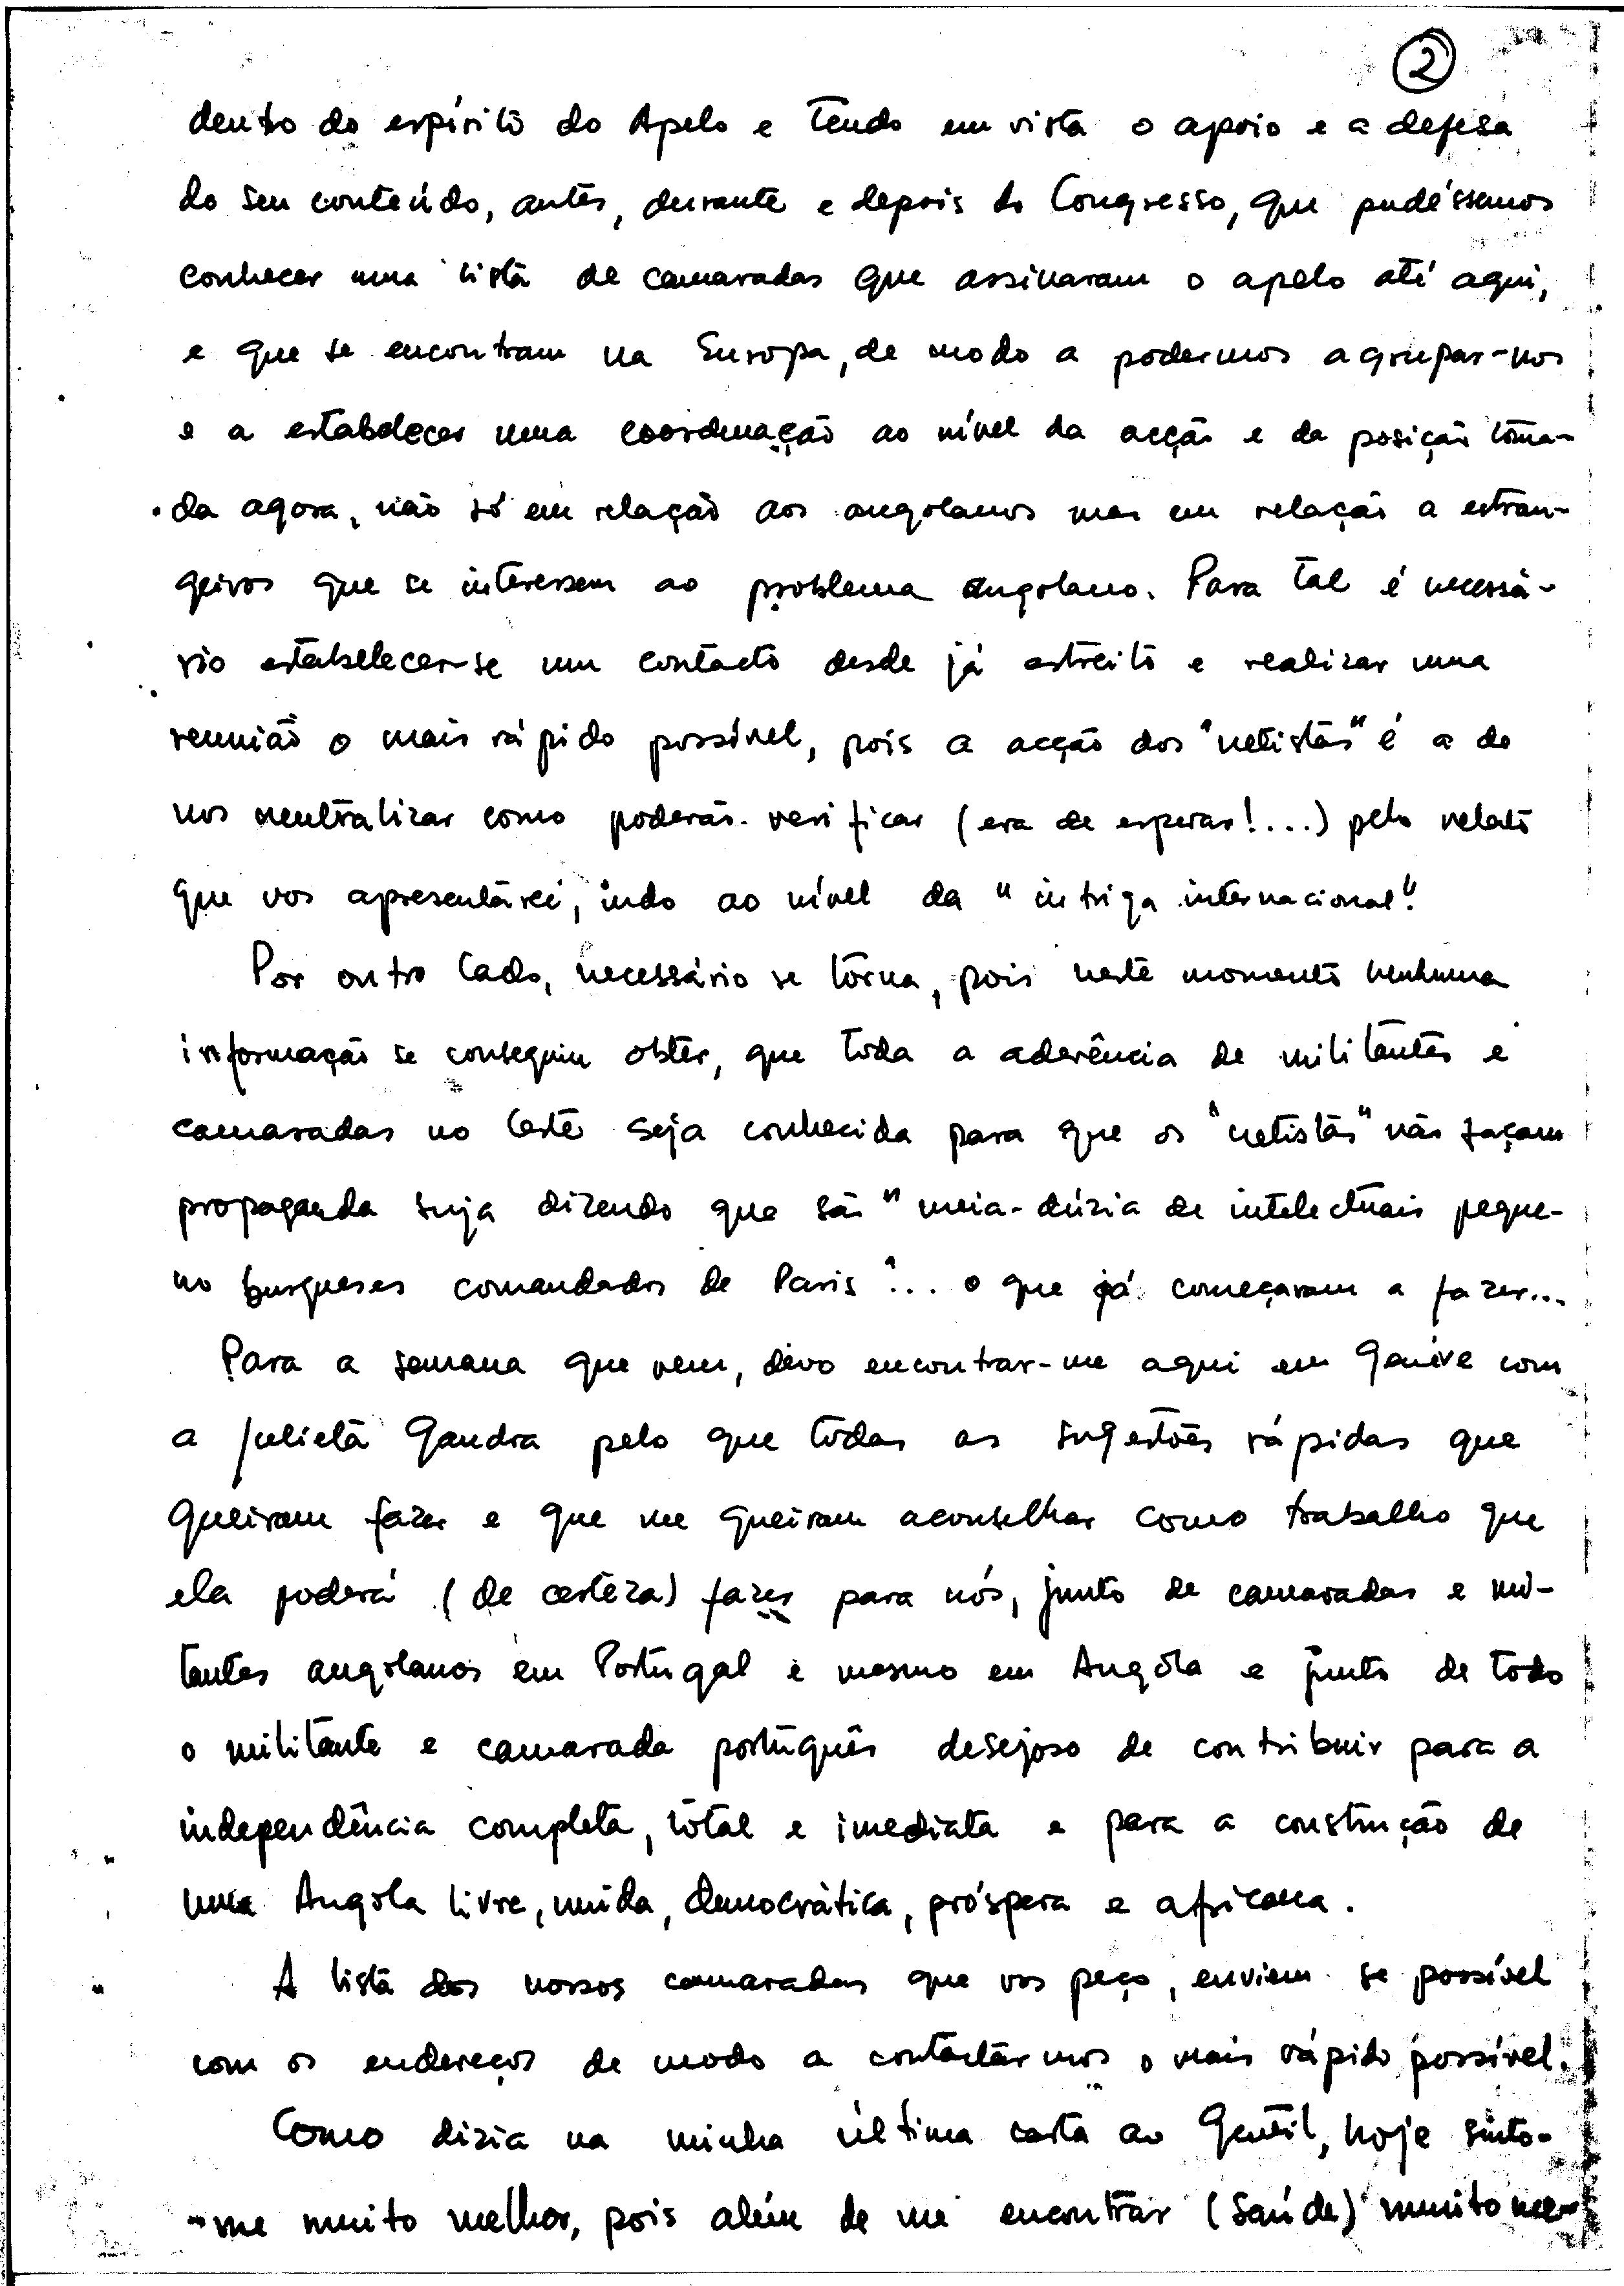 2
dentro do espírito do Apelo e tendo em vista o apoio e a defesa
do seu conteúdo, antes, durante e depois do Congresso, que pudéssemos
conhecer uma lista de camaradas que assinaram o apelo até aqui,
e que se encontram na Europa, de modo a podermos agrupar-nos
e a estabelecer uma coordenação ao nível da acção e da posição toma-
da agora, não só em relação aos angolanos mas em relação a estran-
geiros que se interessem ao problema angolano. Para tal é necessá-
rio estabelecer-se um contacto desde já estreito e realizar uma
reunião o mais rápido possível, pois a acção dos "netistas" é a de
nos neutralizar como poderás verificar (era de esperar!...) pelo relato
que vos apresentárei, indo ao nível da "intriga internacional".
Por outro lado, necessário se torna, pois neste momento nenhuma
informação se conseguiu obter, que toda a aderência de militantes e
camaradas no leste seja conhecida para que os "netistas" não façam
propaganda suja dizendo que são "meia-dúzia de intelectuais peque-
no burgueses comandados de Paris"... o que já começaram a fazer...
Para a semana que vem, devo encontrar-me aqui em Genève com
a Julieta Gandra pelo que todas as sugestões rápidas que
queiram fazer e que me queiram aconselhar como trabalho que
ela poderá (de certeza) fazer para nós, junto de camaradas e mi-
tantes angolanos em Portugal e mesmo em Angola e junto de todo
o militante e camarada português desejoso de contribuir para a
independência completa, total e imediata e para a construção de
uma Angola livre, unida, democrática, próspera e africana.
A lista dos nossos camaradas que vos peço, enviem se possível
com os endereços de modo a contactármos o mais rápido possível.
Como dizia na minha última carta ao Gentil, hoje sinto-
-me muito melhor, pois além de me encontrar (saúde) muito me-